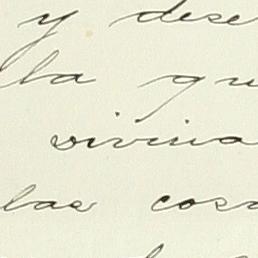 y dese
la qu
vivina
las cosa